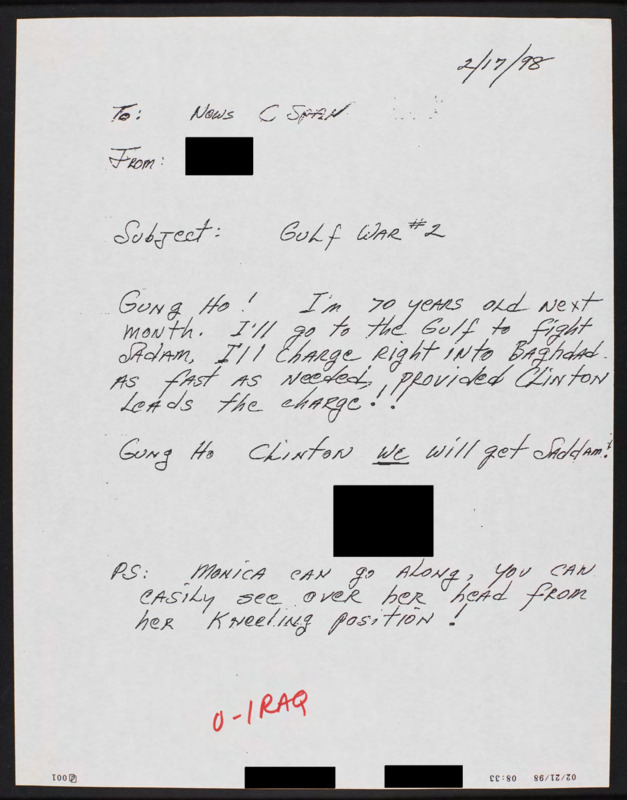 2/17/98
To: News C Span
From:
Subject: Gulf War #2
Gung Ho! I'm 70 years old next
month. I'll go to the Gulf to fight
Sadam, I'll charge right into Baghdad.
As fast as needed, provided Clinton
leads the charge!!
Gung Ho Clinton we will get Saddam!
PS: Monica can go along, you can
easily see over her head from
her kneeling position!
U-IRAQ
001
02/21/98 08:33